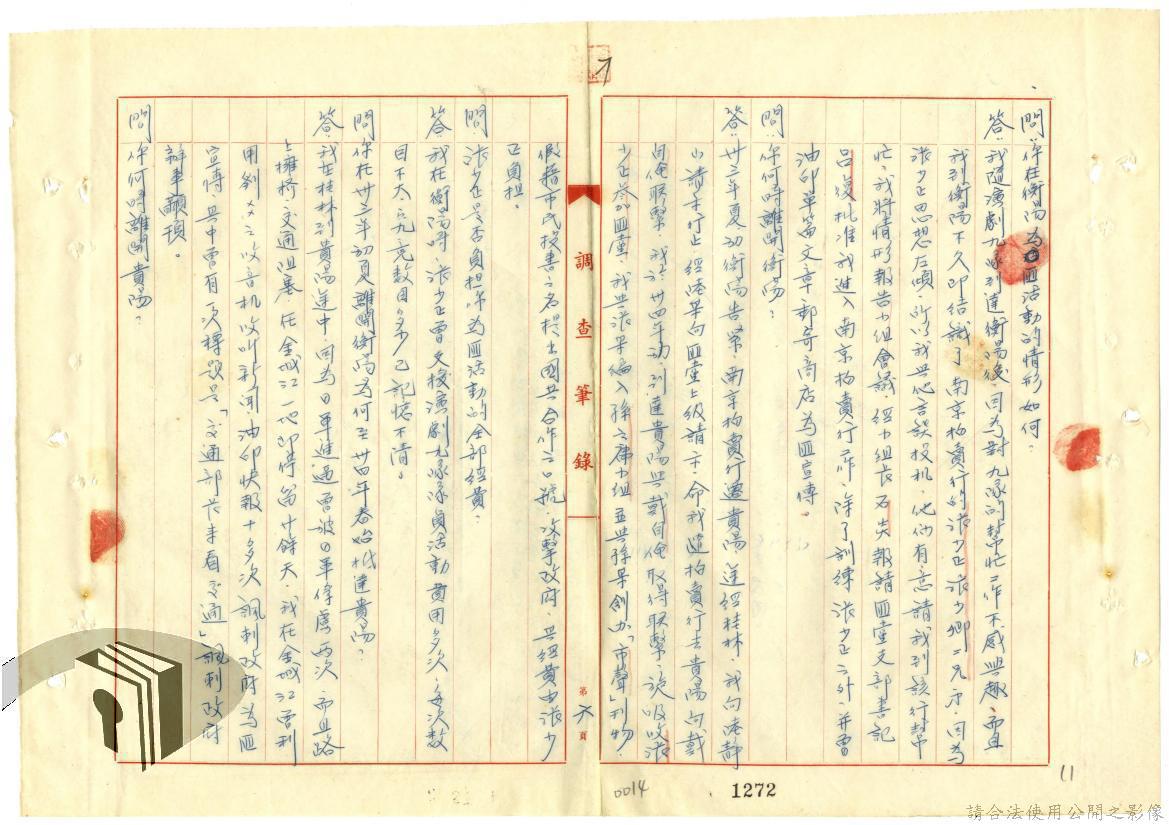 問：你在衡陽為匪活動的情形如何？
答：我隨演劇九隊到達衡陽後，因為對九隊的幫忙工作不感興趣，而且
我到衡陽不久即結識了南京拍賣行的張少正張少卿二兄弟，因為
張少正思想左傾，所以我與他言談投机，他倆有意請我到該行幫
忙，我將情形報告小組會議，經小組長石炎報請匪黨支部書記
呂復批准我進入南京拍賣行工作，除了訓練張少正之外，并曾
油印單篇文章郵寄商店為匪宣傳。
問：你何時離開衡陽？
答：卅三年夏初衡陽告緊，南京拍賣行遷貴陽，途經桂林，我向
請示行止，經陸某向匪黨上級請示，命我隨拍賣行去貴陽向戴
自俺聯繫，我於卅四年初到達貴陽與戴自俺取得聯繫，後吸收張
少正參加匪黨，我與張某編入孫
小組並與孫某創办「市聲」刊物，
假藉市民投書之名提出國共合作之口號，攻擊政府，其經費由張少
正負担。
問：張少正是否負担你為匪活動的全部經費？
答：我在衡陽時，張少正曾支援演劇九隊隊員活動費用多次，每次數
目不大，究竟數目多少已記憶不清。
問：你在卅三年初夏離開衡陽為何至卅四年春始抵達貴陽？
答：我在桂林到貴陽途中，因為日軍進逼曾被日軍俘虜兩次，而且路
上擁擠，交通阻塞，在金城江一地即停留廿餘天，我在金城江曾利
用劉××之收音机收听新聞，油印快報十多次，諷刺政府為匪
宣傳，其中曾有一次標題是「交通部長來看交通」諷刺政府
辦事顢頇。
問：你何時離開貴陽？
調查筆錄
第六頁
7
0014
1272
11
請合法使用公開之影像